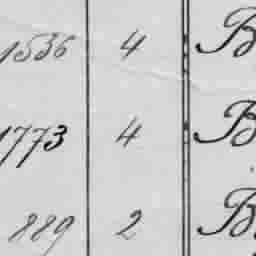 1536 4 B
1773 4 B
889 2 B